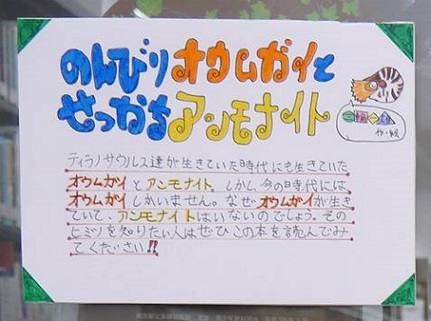 のんびりオウムガイと
せっかちアンモナイト
三輪一雄
作・絵
ティラノサウルス達が生きていた時代にも生きていた
オウムガイとアンモナイト。しかし、今の時代には
オウムガイしかいません。なぜオウムガイが生き
ていて、アンモナイトはいないのでしょう。その
ヒミツを知りたい人はぜひこの本を読んでみ
てください!!